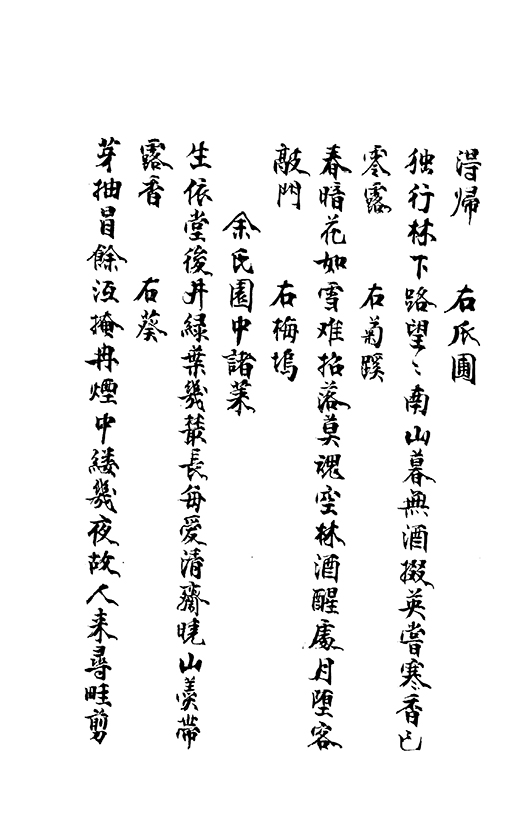 得歸　　右瓜圃
獨行林下路望〻南山暮無酒掇英嘗寒香已
零露　　右菊蹊
春暗花如雪难招落莫魂空林酒醒處月堕客
敲門　　右梅塢
余氏園中諸菜
生依堂後井緑葉幾叢長每愛清齋曉山羹帶
露香　　右葵
芽抽冒餘沍掩冉煙中縷幾夜故人来尋畦剪